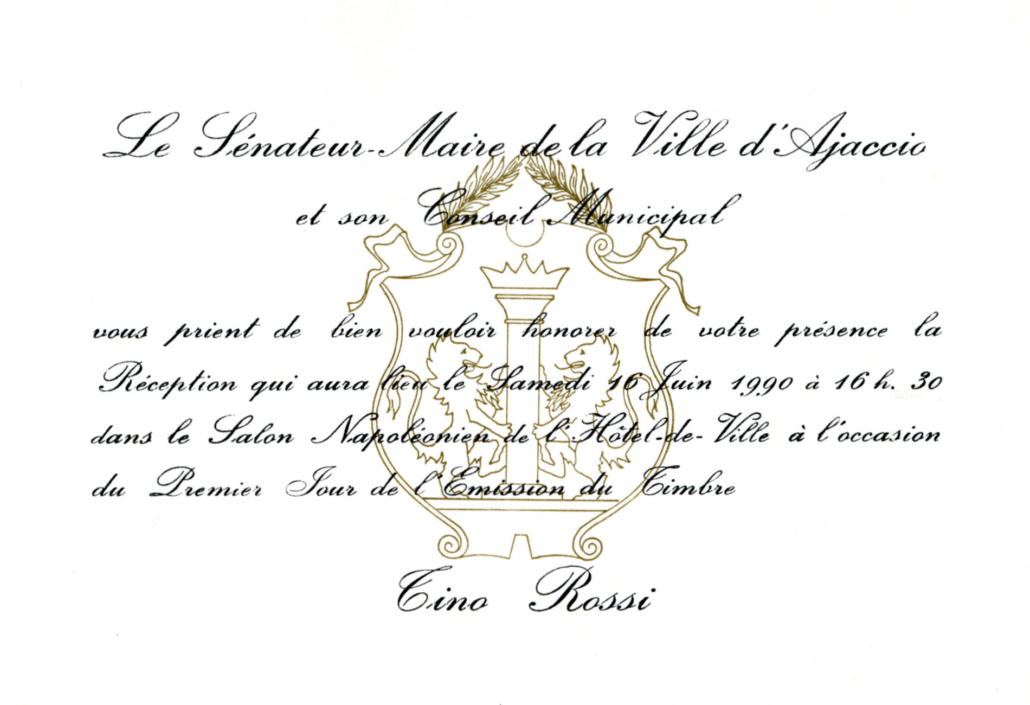 Le Sénateur-Maire de la Ville d'Ajaccio
et son Conseil Municipal
vous prient de bien vouloir honorer de votre présence la
Réception qui aura lieu le Samedi 16 Juin 1990 à 16 h. 30
dans le Salon Napoléonien de l'Hôtel-de-Ville à l'occasion
du Premier Jour de l'Emission du Timbre
Tino Rossi